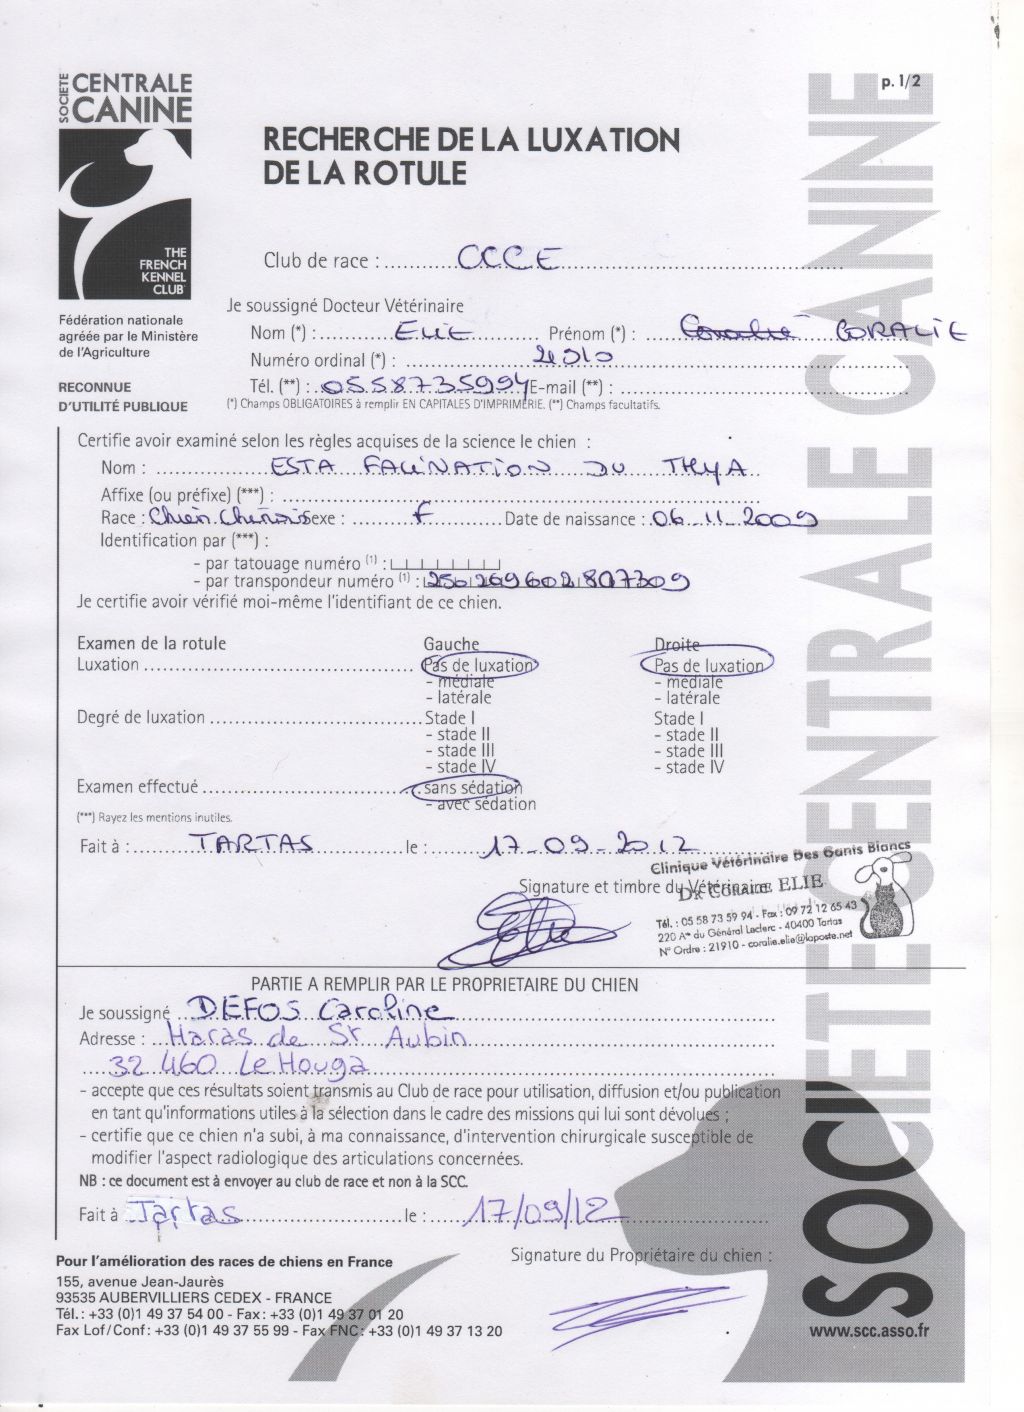 SOCIETE
CENTRALE
CANINE
p. 1/2
RECHERCHE DE LA LUXATION
DE LA ROTULE
THE
FRENCH
KENNEL
CLUB
Fédération nationale
agréée par le Ministère
de l'Agriculture
RECONNUE
D'UTILITÉ PUBLIQUE
Club de race : CCCE
Je soussigné Docteur Vétérinaire
Nom (*) : ELIE Prénom (*) : CORALIE
Numéro ordinal (*) :
Tél. (**) : 0558735994 E-mail (**) :
(*) Champs OBLIGATOIRES à remplir EN CAPITALES D'IMPRIMERIE. (**) Champs facultatifs.
Certifie avoir examiné selon les règles acquises de la science le chien :
Nom : ESTA FACINATION DU THYA
Affixe (ou préfixe) (***) :
Race : Chien Chinois Sexe : F Date de naissance : 06-11-2009
Identification par (***) :
- par tatouage numéro (1) :
- par transpondeur numéro (1) : 250269602807309
Je certifie avoir vérifié moi-même l'identifiant de ce chien.
Examen de la rotule Gauche Droite
Luxation Pas de luxation Pas de luxation
- médiale - médiale
- latérale - latérale
Degré de luxation Stade I Stade I
- stade II - stade II
- stade III - stade III
- stade IV - stade IV
Examen effectué sans sédation
- avec sédation
(***) Rayez les mentions inutiles.
Fait à : TARTAS le : 17-09-2012
Signature et timbre du Vétérinaire
Clinique Vétérinaire Des Gants Blancs
Dr CORALIE ELIE
Tél. : 05 58 73 59 94 - Fax : 09 72 12 65 43
220 Av du Général Leclerc - 40400 Tartas
N° Ordre : 21910 - coralie.elie@laposte.net
PARTIE A REMPLIR PAR LE PROPRIETAIRE DU CHIEN
Je soussigné DEFOS Caroline
Adresse : Haras de St Aubin
32 460 Le Houga
- accepte que ces résultats soient transmis au Club de race pour utilisation, diffusion et/ou publication
en tant qu'informations utiles à la sélection dans le cadre des missions qui lui sont dévolues ;
- certifie que ce chien n'a subi, à ma connaissance, d'intervention chirurgicale susceptible de
modifier l'aspect radiologique des articulations concernées.
NB : ce document est à envoyer au club de race et non à la SCC.
Fait à Tartas le : 17/09/12
Signature du Propriétaire du chien :
Pour l'amélioration des races de chiens en France
155, avenue Jean-Jaurès
93535 AUBERVILLIERS CEDEX - FRANCE
Tél. : +33 (0)1 49 37 54 00 - Fax : +33 (0)1 49 37 01 20
Fax Lof/Conf : +33 (0)1 49 37 55 99 - Fax FNC : +33 (0)1 49 37 13 20
SOCIETE CENTRALE CANINE
www.scc.asso.fr